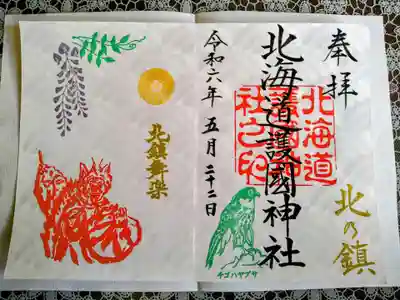 奉拝
北海道護國神社
北海道
社之印
北の鎮
令和六年五月二十二日
チゴハヤブサ
北鎮舞楽